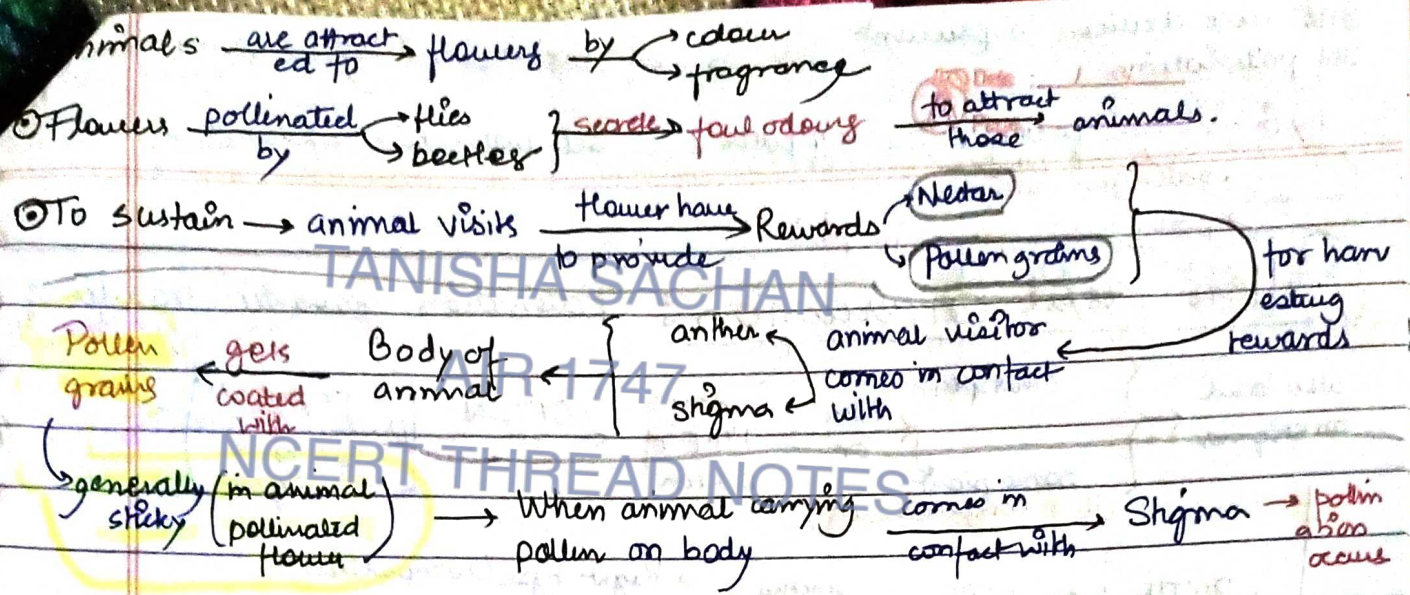 nimals are attracted to → flowers by → colour
→ fragrance
⊙ Flowers pollinated by → flies
→ beetles } secrete → foul odours to attract those → animals.
⊙ To sustain → animal visits flower have to provide → Rewards → Nectar
→ Pollen grains
for harvesting rewards
animal visitor comes in contact with
anther
stigma
← Body of animal
gets coated with
Pollen grains
generally sticky (in animal pollinated flower) → When animal carrying pollen on body comes in contact with → Stigma → pollination occurs
TANISHA SACHAN
AIR 1747
NCERT THREAD NOTES